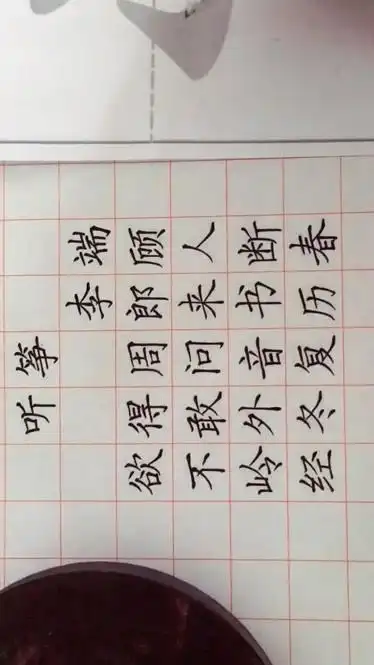 听筝
李端
欲得周郎顾
不敢问来人
岭外音书断
经冬复历春